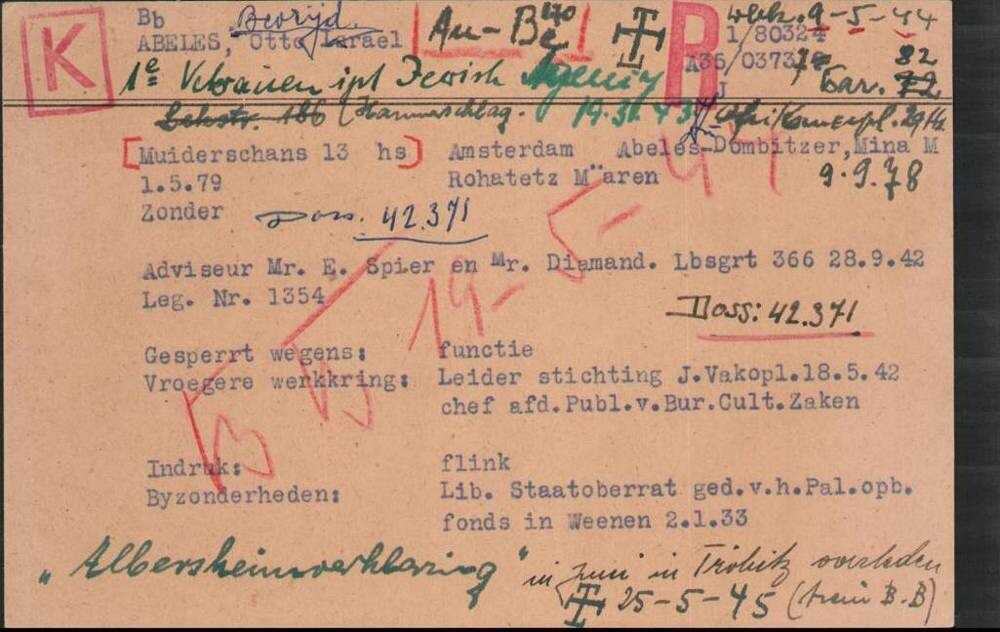 K
Bb Bevrijd. Au-Be R Welk. 9-5-44
ABELES, Otto Israel 1/80324
A36/0373 82
1e Vertrauen ipl Jewish Agency Bar. 72
166 (Hammerschlag. 19.
[Muiderschans 13 hs] Amsterdam Abeles-Dombitzer, Mina M
1.5.79 Rohatetz M"aren 9.9.78
Zonder Doss. 42.371
Adviseur Mr. E. Spier en Mr. Diamand. Lbsgrt 366 28.9.42
Leg. Nr. 1354
Doss: 42.371
BB 19-5-44
Gesperrt wegens: functie
Vroegere werkkring: Leider stichting J.Vakopl.18.5.42
chef afd.Publ.v.Bur.Cult.Zaken
Indruk: flink
Byzonderheden: Lib. Staatoberrat ged.v.h.Pal.opb.
fonds in Weenen 2.1.33
"Albersheimverklaring" in juni in Tröbitz overleden
25-5-45 (trein B.B)